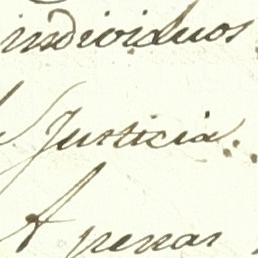 individuos
Justicia.
Apenas